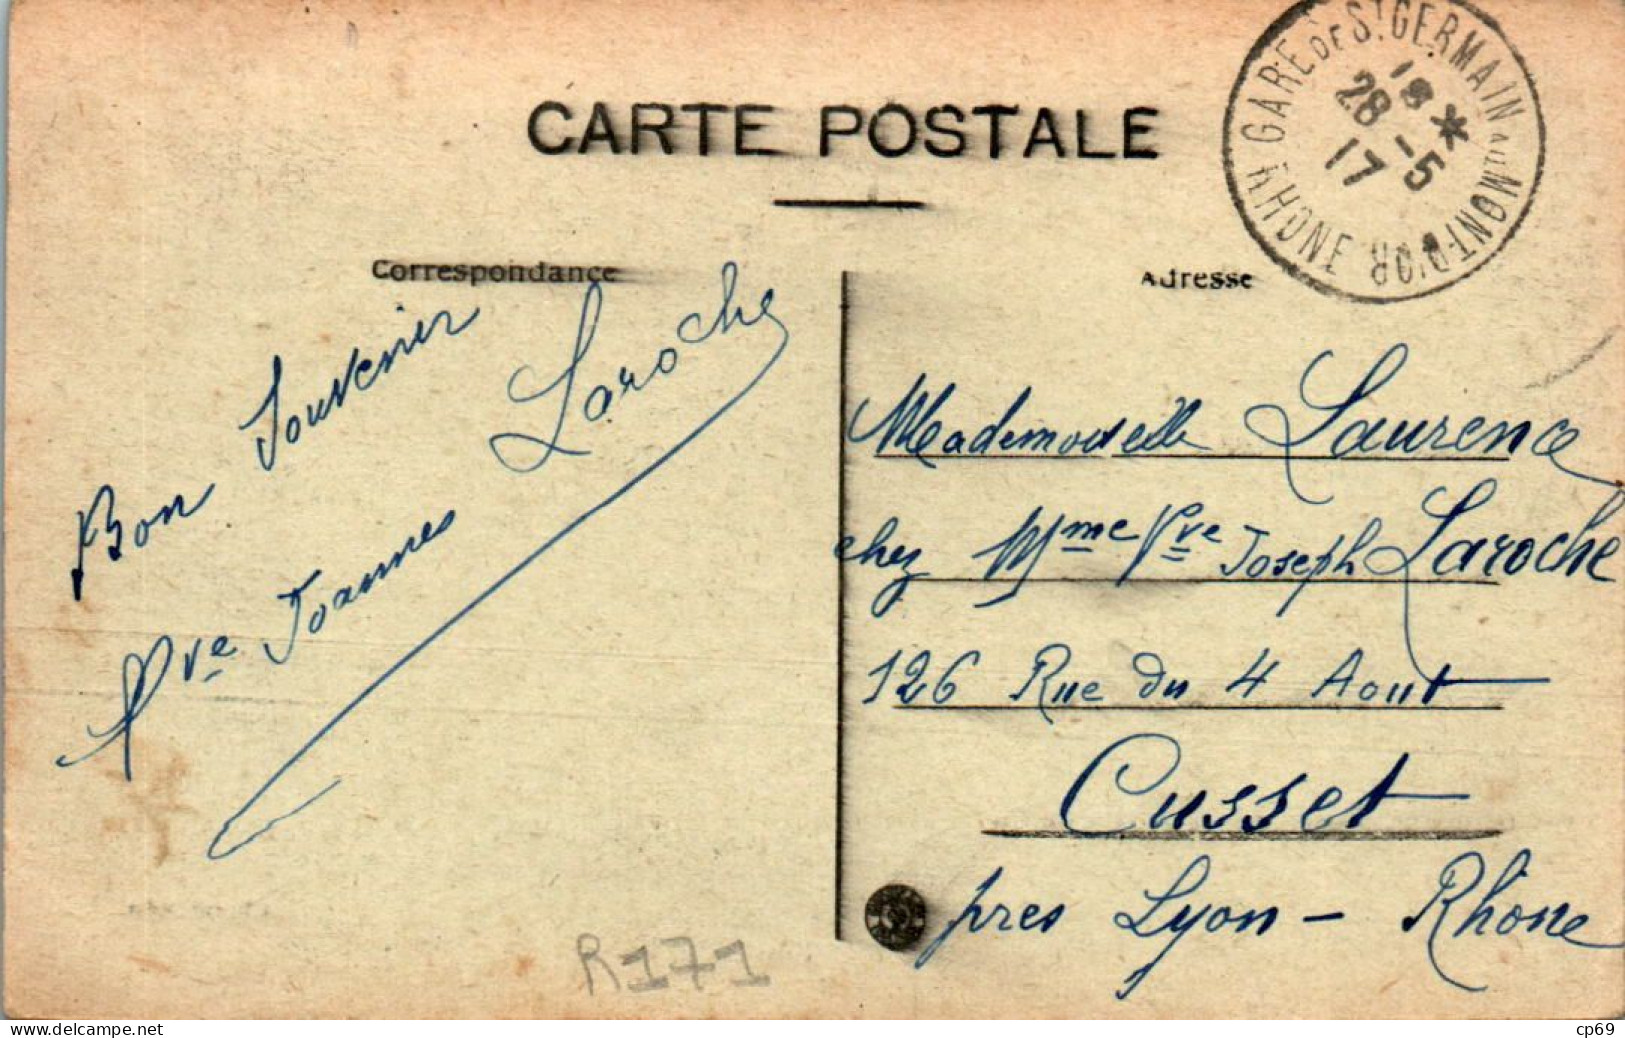 CARTE POSTALE
Correspondance
Adresse
GARE DE ST GERMAIN AU MONT-D'OR RHONE
18 *
28 -5
17
Bon Souvenir
Vve Joannes Laroche
Mademoiselle Laurence
chez Mme Vve Joseph Laroche
126 Rue du 4 Aout
Cusset
pres Lyon - Rhone
R171
www.delcampe.net
cp69